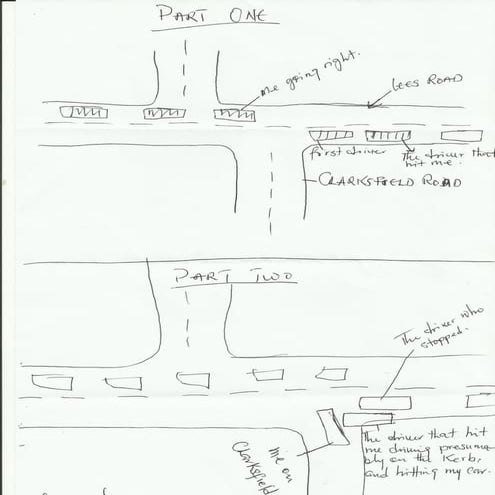 PART ONE
me going right.
LEES ROAD
first driver
The driver that
hit me.
CLARKSFIELD ROAD
PART TWO
The driver who
stopped.
me on
Clarksfield
The driver that hit
me driving presuma
bly on the Kerb,
and hitting my car.